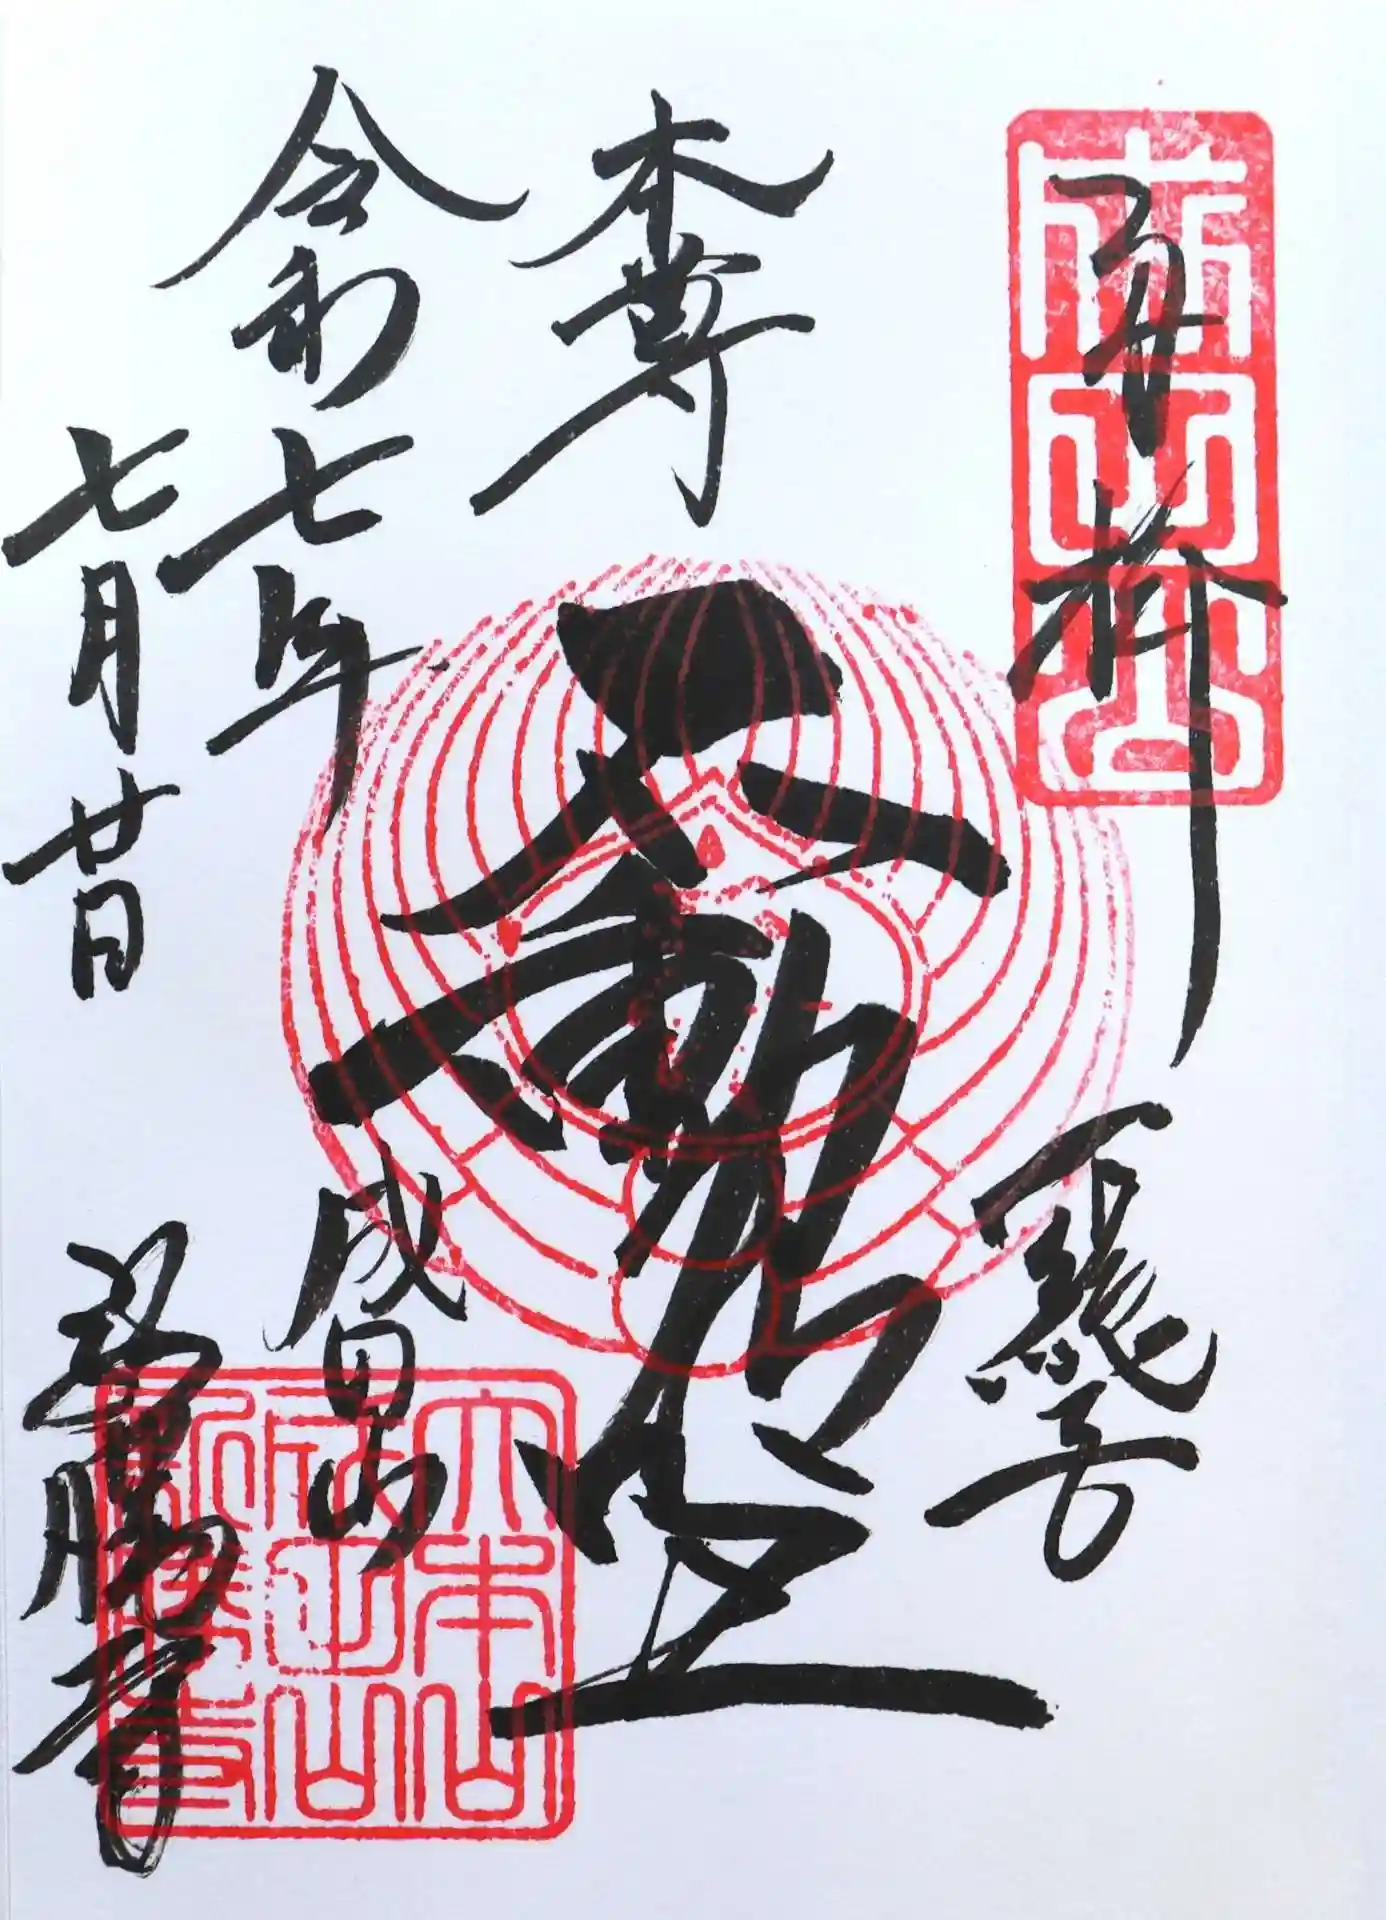 奉拝
本尊
不動明王
令和七年
七月廿日
成田山
新勝寺
成田山
大本山
成田山
新勝寺